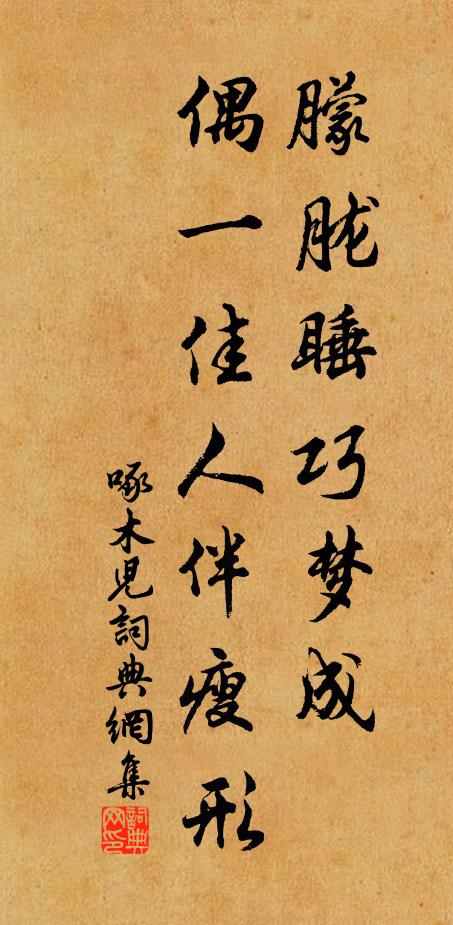 朦胧睡巧梦成
偶一佳人伴瘦形
啄木児詞典網集
詞典网印